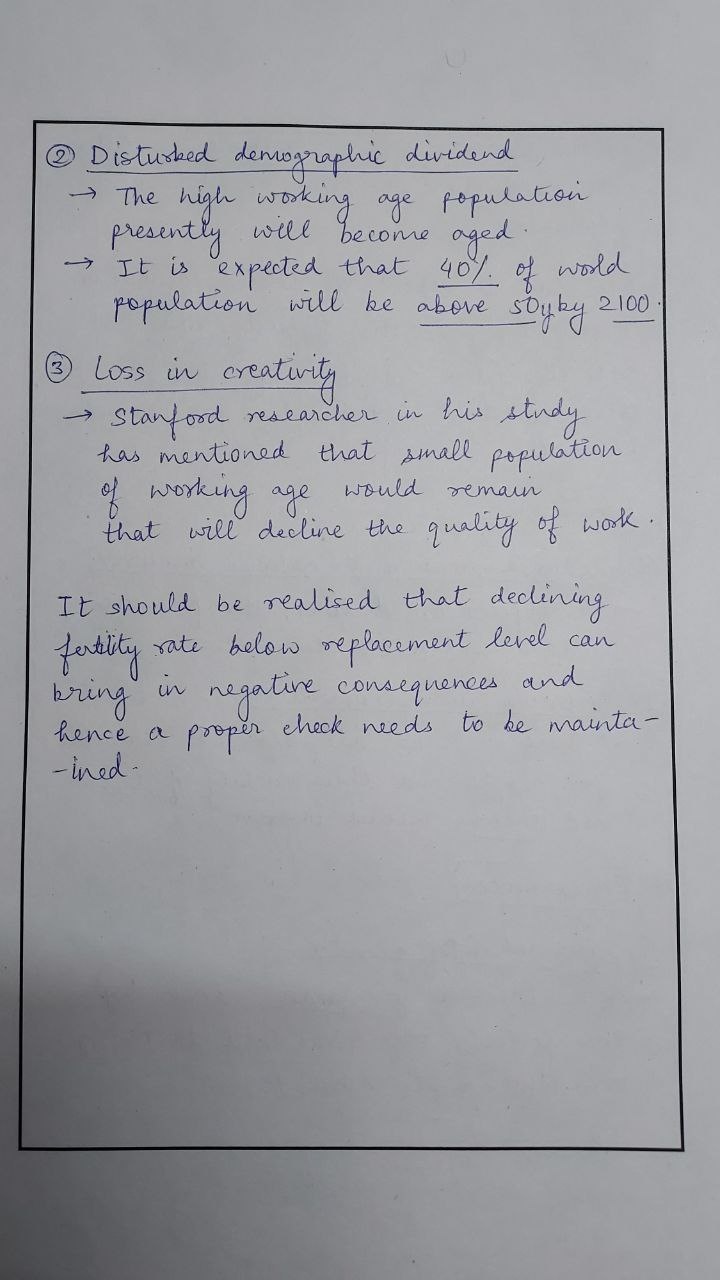 ② Disturbed demographic dividend
→ The high working age population
presently will become aged.
→ It is expected that 40% of world
population will be above 50y by 2100.
③ Loss in creativity
→ Stanford researcher in his study
has mentioned that small population
of working age would remain
that will decline the quality of work.
It should be realised that declining
fertility rate below replacement level can
bring in negative consequences and
hence a proper check needs to be mainta-
-ined.